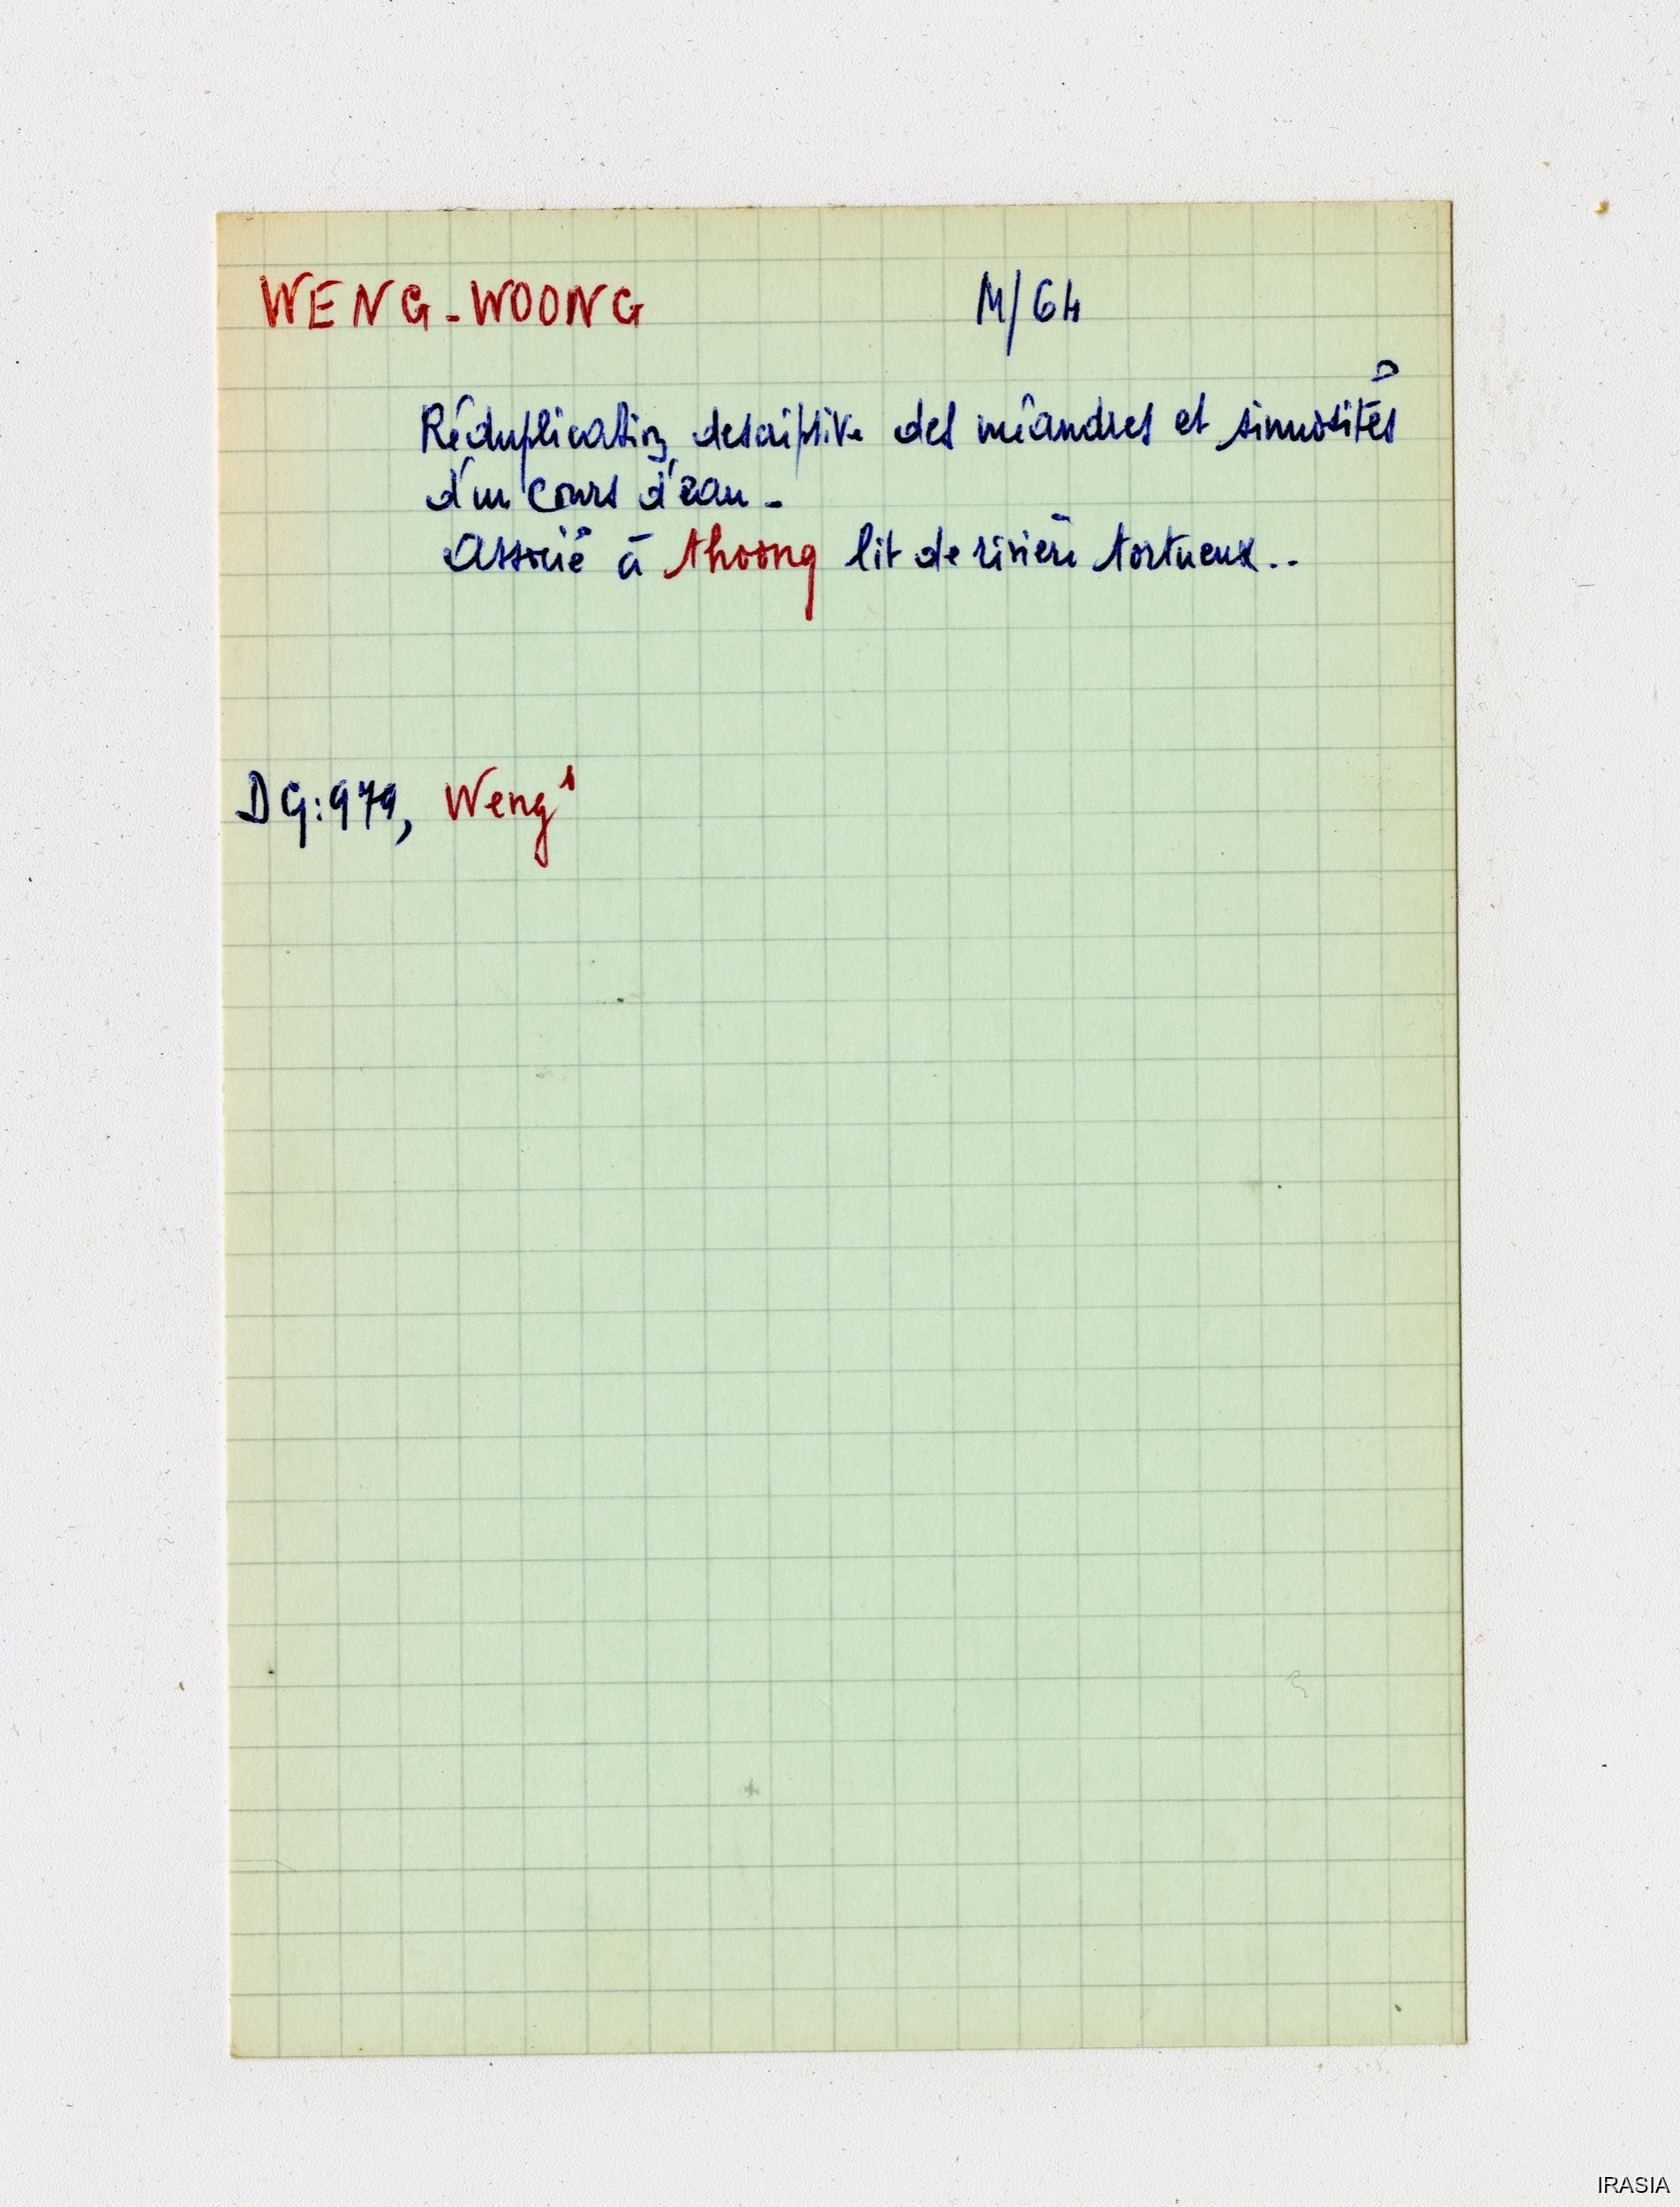 WENG-WOONG M/64
Réduplication descriptive des méandres et sinuosités
d'un cours d'eau -
Associé à thoong lit de rivière tortueux..
DG:979, Weng¹
IRASIA